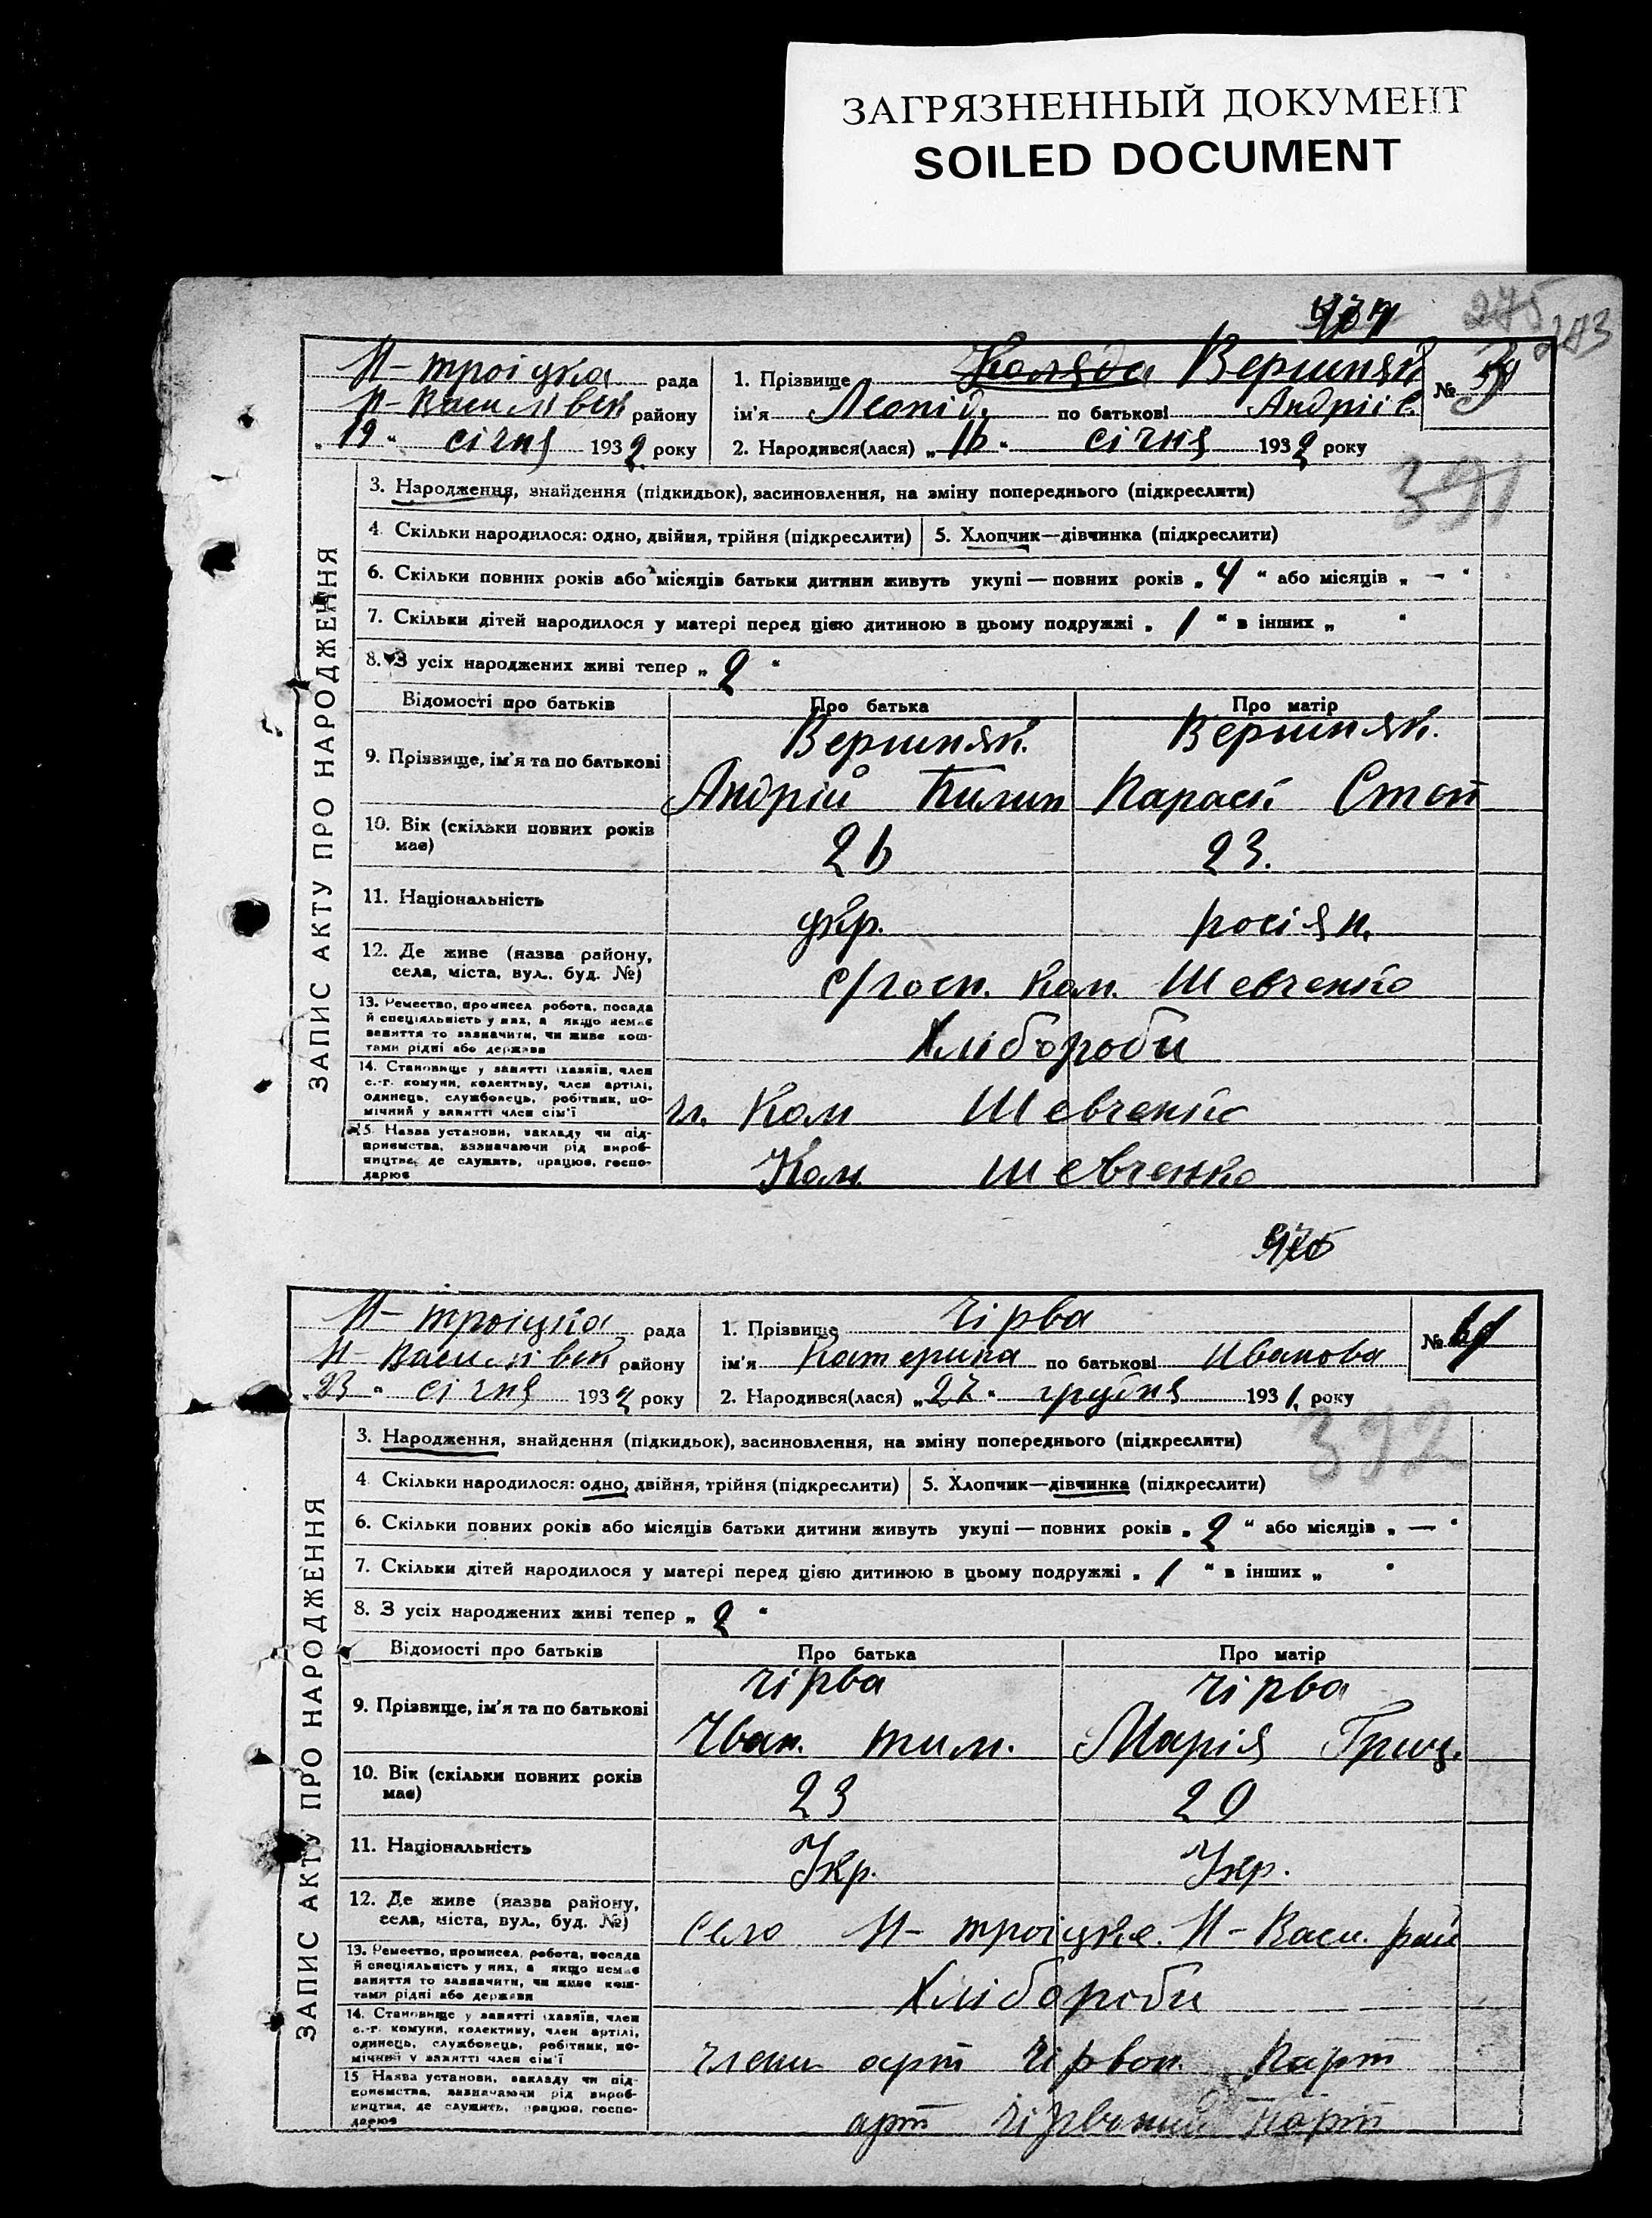 ЗАГРЯЗНЕННЫЙ ДОКУМЕНТ
SOILED DOCUMENT
275
273
Н-троіцка рада
Н-Васи лі вск району
„19“ січня 1932 року
1. Прізвище Коляда Вершняк
ім'я Леонід по батькові Андріів.
2. Народився(лася) „16“ січня 1932 року
№
391
ЗАПИС АКТУ ПРО НАРОДЖЕННЯ
3. Народження, знайдення (підкидьок), засиновлення, на зміну попереднього (підкреслити)
4. Скільки народилося: одно, двійня, трійня (підкреслити)
5. Хлопчик—дівчинка (підкреслити)
6. Скільки повних років або місяців батьки дитини живуть укупі — повних років „4“ або місяців „—“
7. Скільки дітей народилося у матері перед цією дитиною в цьому подружжі „1“ в інших „ “
8. З усіх народжених живі тепер „2“
Відомості про батьків
Про батька
Про матір
9. Прізвище, ім'я та по батькові
Вершняк.
Вершняк.
Андрій
Парасі. Степ
10. Вік (скільки повних років має)
26
23.
11. Національність
укр.
росіян.
12. Де живе (назва району, села, міста, вул., буд. №)
с/госп. Ком. Шевченко
13. Ремество, промисел, робота, посада й спеціяльність у них, а якщо немає заняття то зазначити, чи живе коштами рідні або держава
Хлібороби
14. Становище у занятті (хазяїн, член с.-г. комуни, колективу, член артілі, одинець, службовець, робітник, помічний у занятті член сім'ї
чл. Ком Шевченко
15. Назва установи, закладу чи підприємства, зазначаючи рід виробництва, де служить, працює, господарює
Ком. Шевченко
Н-троіцка рада
Н-Васи лі вск району
„23“ січня 1932 року
1. Прізвище Чірва
ім'я Катерина по батькові Иванова
2. Народився(лася) „27“ грудня 1931 року
№
392
ЗАПИС АКТУ ПРО НАРОДЖЕННЯ
3. Народження, знайдення (підкидьок), засиновлення, на зміну попереднього (підкреслити)
4 Скільки народилося: одно, двійня, трійня (підкреслити)
5. Хлопчик—дівчинка (підкреслити)
6. Скільки повних років або місяців батьки дитини живуть укупі — повних років „2“ або місяців „—“
7. Скільки дітей народилося у матері перед цією дитиною в цьому подружжі „1“ в інших „ “
8. З усіх народжених живі тепер „2“
Відомості про батьків
Про батька
Про матір
9. Прізвище, ім'я та по батькові
Чірва
Чірва
Иван. Тим.
Марія Гриц.
10. Вік (скільки повних років має)
23
20
11. Національність
Укр.
Укр.
12. Де живе (назва району, села, міста, вул., буд. №)
село Н-троіцке. Н-Васи. рай
13. Ремество, промисел, робота, посада й спеціяльність у них, а якщо немає заняття то зазначити, чи живе коштами рідні або держави
Хлібороби
14. Становище у занятті (хазяїн, член с.-г. комуни, колективу, член артілі, одинець, службовець, робітник, помічний у занятті член сім'ї
члени арт Чірвон. Парт
15 Назва установи, закладу чи підприємства, зазначаючи рід виробництва, де служить, працює, господарює
арт Чірвоний Парт